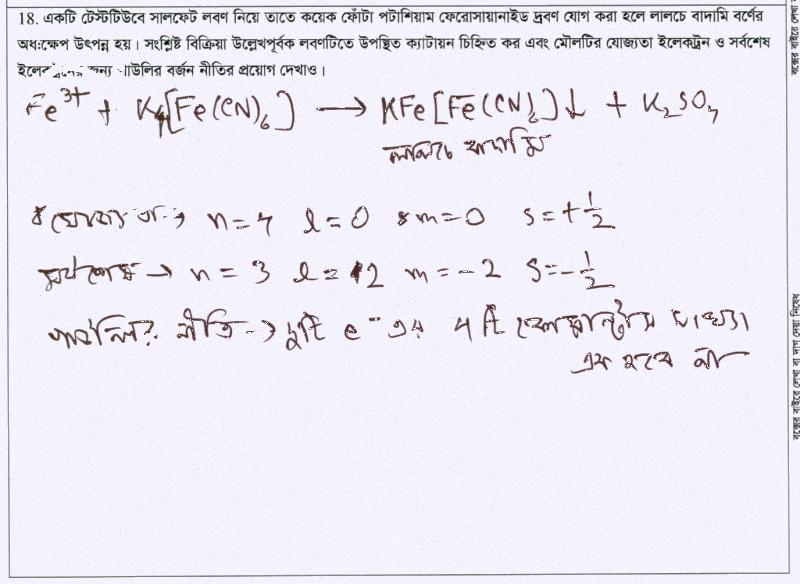 18. একটি টেস্টটিউবে সালফেট লবণ নিয়ে তাতে কয়েক ফোঁটা পটাশিয়াম ফেরোসায়ানাইড দ্রবণ যোগ করা হলে লালচে বাদামি বর্ণের
অধঃক্ষেপ উৎপন্ন হয়। সংশ্লিষ্ট বিক্রিয়া উল্লেখপূর্বক লবণটিতে উপস্থিত ক্যাটায়ন চিহ্নিত কর এবং মৌলটির যোজ্যতা ইলেকট্রন ও সর্বশেষ
জন্য পাউলির বর্জন নীতির প্রয়োগ দেখাও।
Fe³⁺ + K₄[Fe(CN)₆] ⟶ KFe[Fe(CN)₆]↓ + K₂SO₄
লালচে বাদামি
যোজ্যতা → n = 4 l = 0 m = 0 s = +1/2
সর্বশেষ → n = 3 l = 2 m = -2 s = -1/2
নীতি → দুইটি e⁻ এর 4 টি কোয়ান্টাম সংখ্যা
এক হবে না
বক্সের বাইরে লেখা বা দাগ দেয়া নিষেধ